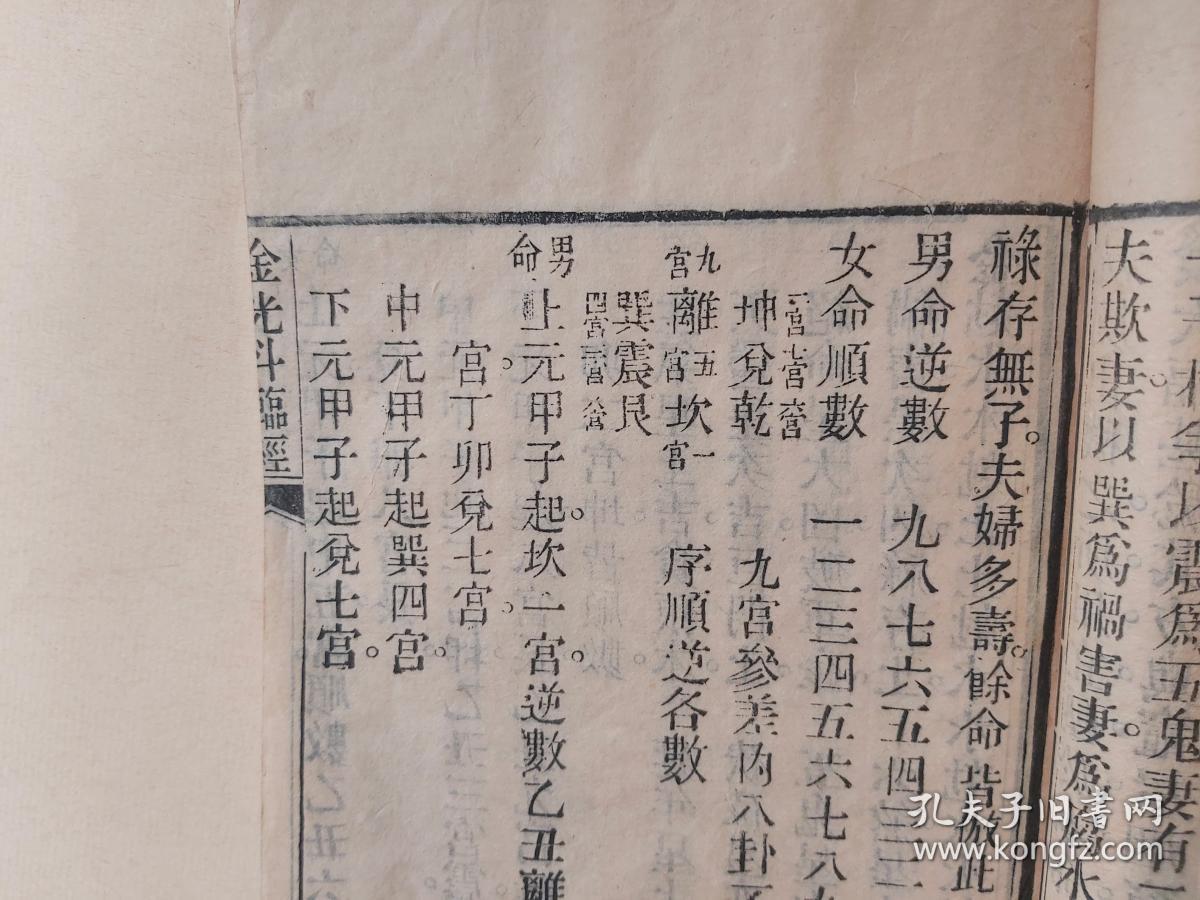 夫欺妻以巽爲禍害妻爲
祿存無子。夫婦多壽。餘命皆倣此
男命逆數 九八七六五四三二
女命順數 一二三四五六七八九
二宮七宮六宮
坤兌乾 九宮參差內八卦
九宮離五宮坎一宮 序順逆各數
巽震艮
四宮三宮八宮
男命上元甲子起。坎一宮。逆數乙丑離
宮。丁卯兌七宮。
中元甲子起巽四宮。
下元甲子起兌七宮。
金光斗臨經
孔夫子旧書网
www.kongfz.com